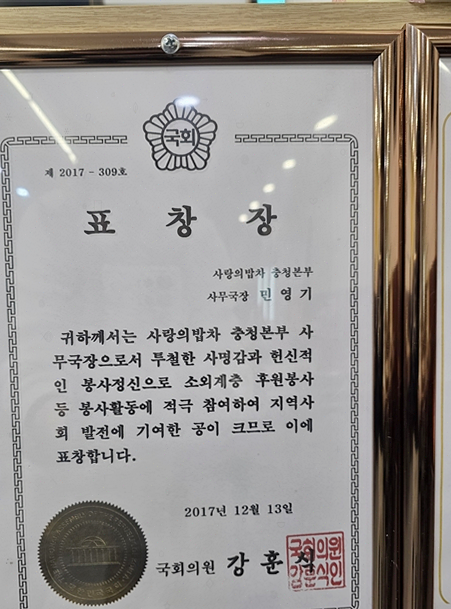 국회
제 2017 - 309호
표 창 장
사랑의밥차 충청본부
사무국장 민영기
귀하께서는 사랑의밥차 충청본부 사
무국장으로서 투철한 사명감과 헌신적
인 봉사정신으로 소외계층 후원봉사
등 봉사활동에 적극 참여하여 지역사
회 발전에 기여한 공이 크므로 이에
표창합니다.
2017년 12월 13일
국회의원 강훈식
국회의원
강훈식인